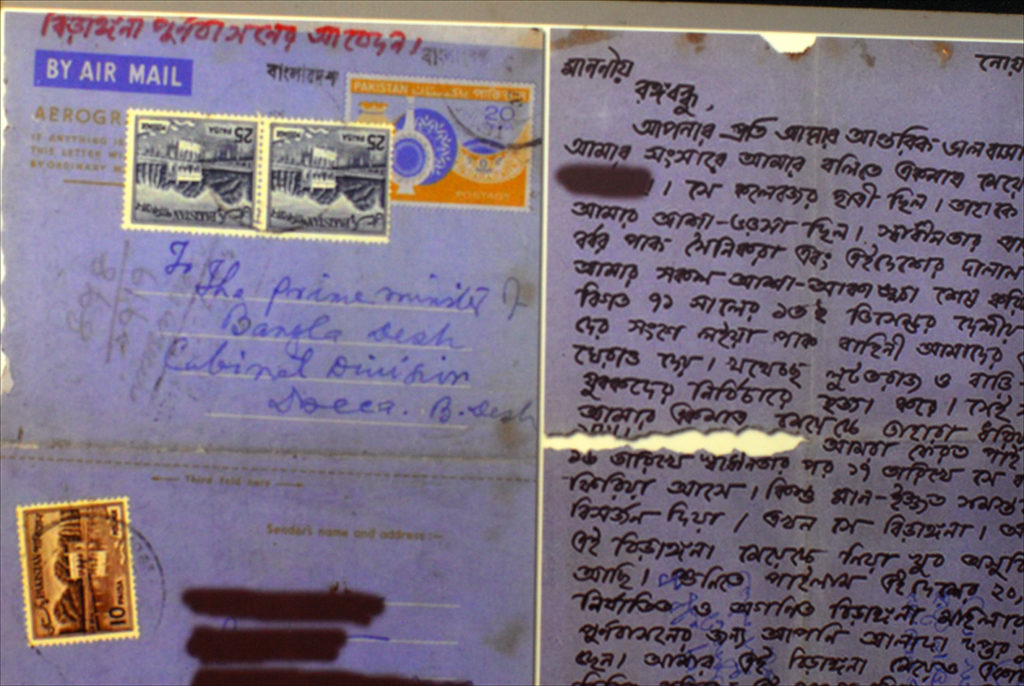 বিড়াঙ্গনা পুর্নবাসনের আবেদন।
BY AIR MAIL
বাংলাদেশ
বাংলাদেশ
AEROGR
IF ANYTHING IS
THIS LETTER WI
BY ORDINARY M
PAKISTAN
20
POSTAGE
25
PAISA
PAKISTAN
25
PAISA
PAKISTAN
To The prime minister of
Bangla Desh
Cabinet Division
Dacca. B. Desh
Third fold here
Sender's name and address:—
PAKISTAN
10 PAISA
মাননীয়
বঙ্গবন্ধু,
আপনার প্রতি আমার আন্তরিক ভালবাসা
আমার সংসারে আমার বলিতে একমাত্র মেয়ে
। সে কলেজের ছাত্রী ছিল। তাহাকে
আমার আশা-ভরসা ছিল। স্বাধীনতার
বর্বর পাক সৈনিকরা এবং এইদেশের দালাল
আমার সকল আশা-আকাঙ্ক্ষা শেষ
বিগত ৭১ সালের ১৩ই ডিসেম্বর দেশীয়
দের সংগে লইয়া পাক বাহিনী আমাদের
ঘেরাও দেয়। যথেচ্ছ লুটতরাজ ও বাড়ি-
যুবকদের নির্বিচারে হত্যা করে। সেই
আমার একমাত্র মেয়েকে তাহারা ধরিয়া
আমরা ফেরত পাই
১৬ তারিখে স্বাধীনতার পর ১৭ তারিখে সে
ফিরিয়া আসে। কিন্তু মান-ইজ্জত সমস্ত
বিসর্জন দিয়া। এখন সে বিড়াঙ্গনা।
এই বিড়াঙ্গনা মেয়েকে নিয়া খুব
আছি। শুনিতে পাইলাম এই দেশের ২০,
নির্যাতিত ও অগণিত বিড়াঙ্গনা মহিলার
পুর্নবাসনের জন্য আপনি আলাদা দপ্তর
দেন। আমার এই বিড়াঙ্গনা মেয়েকে